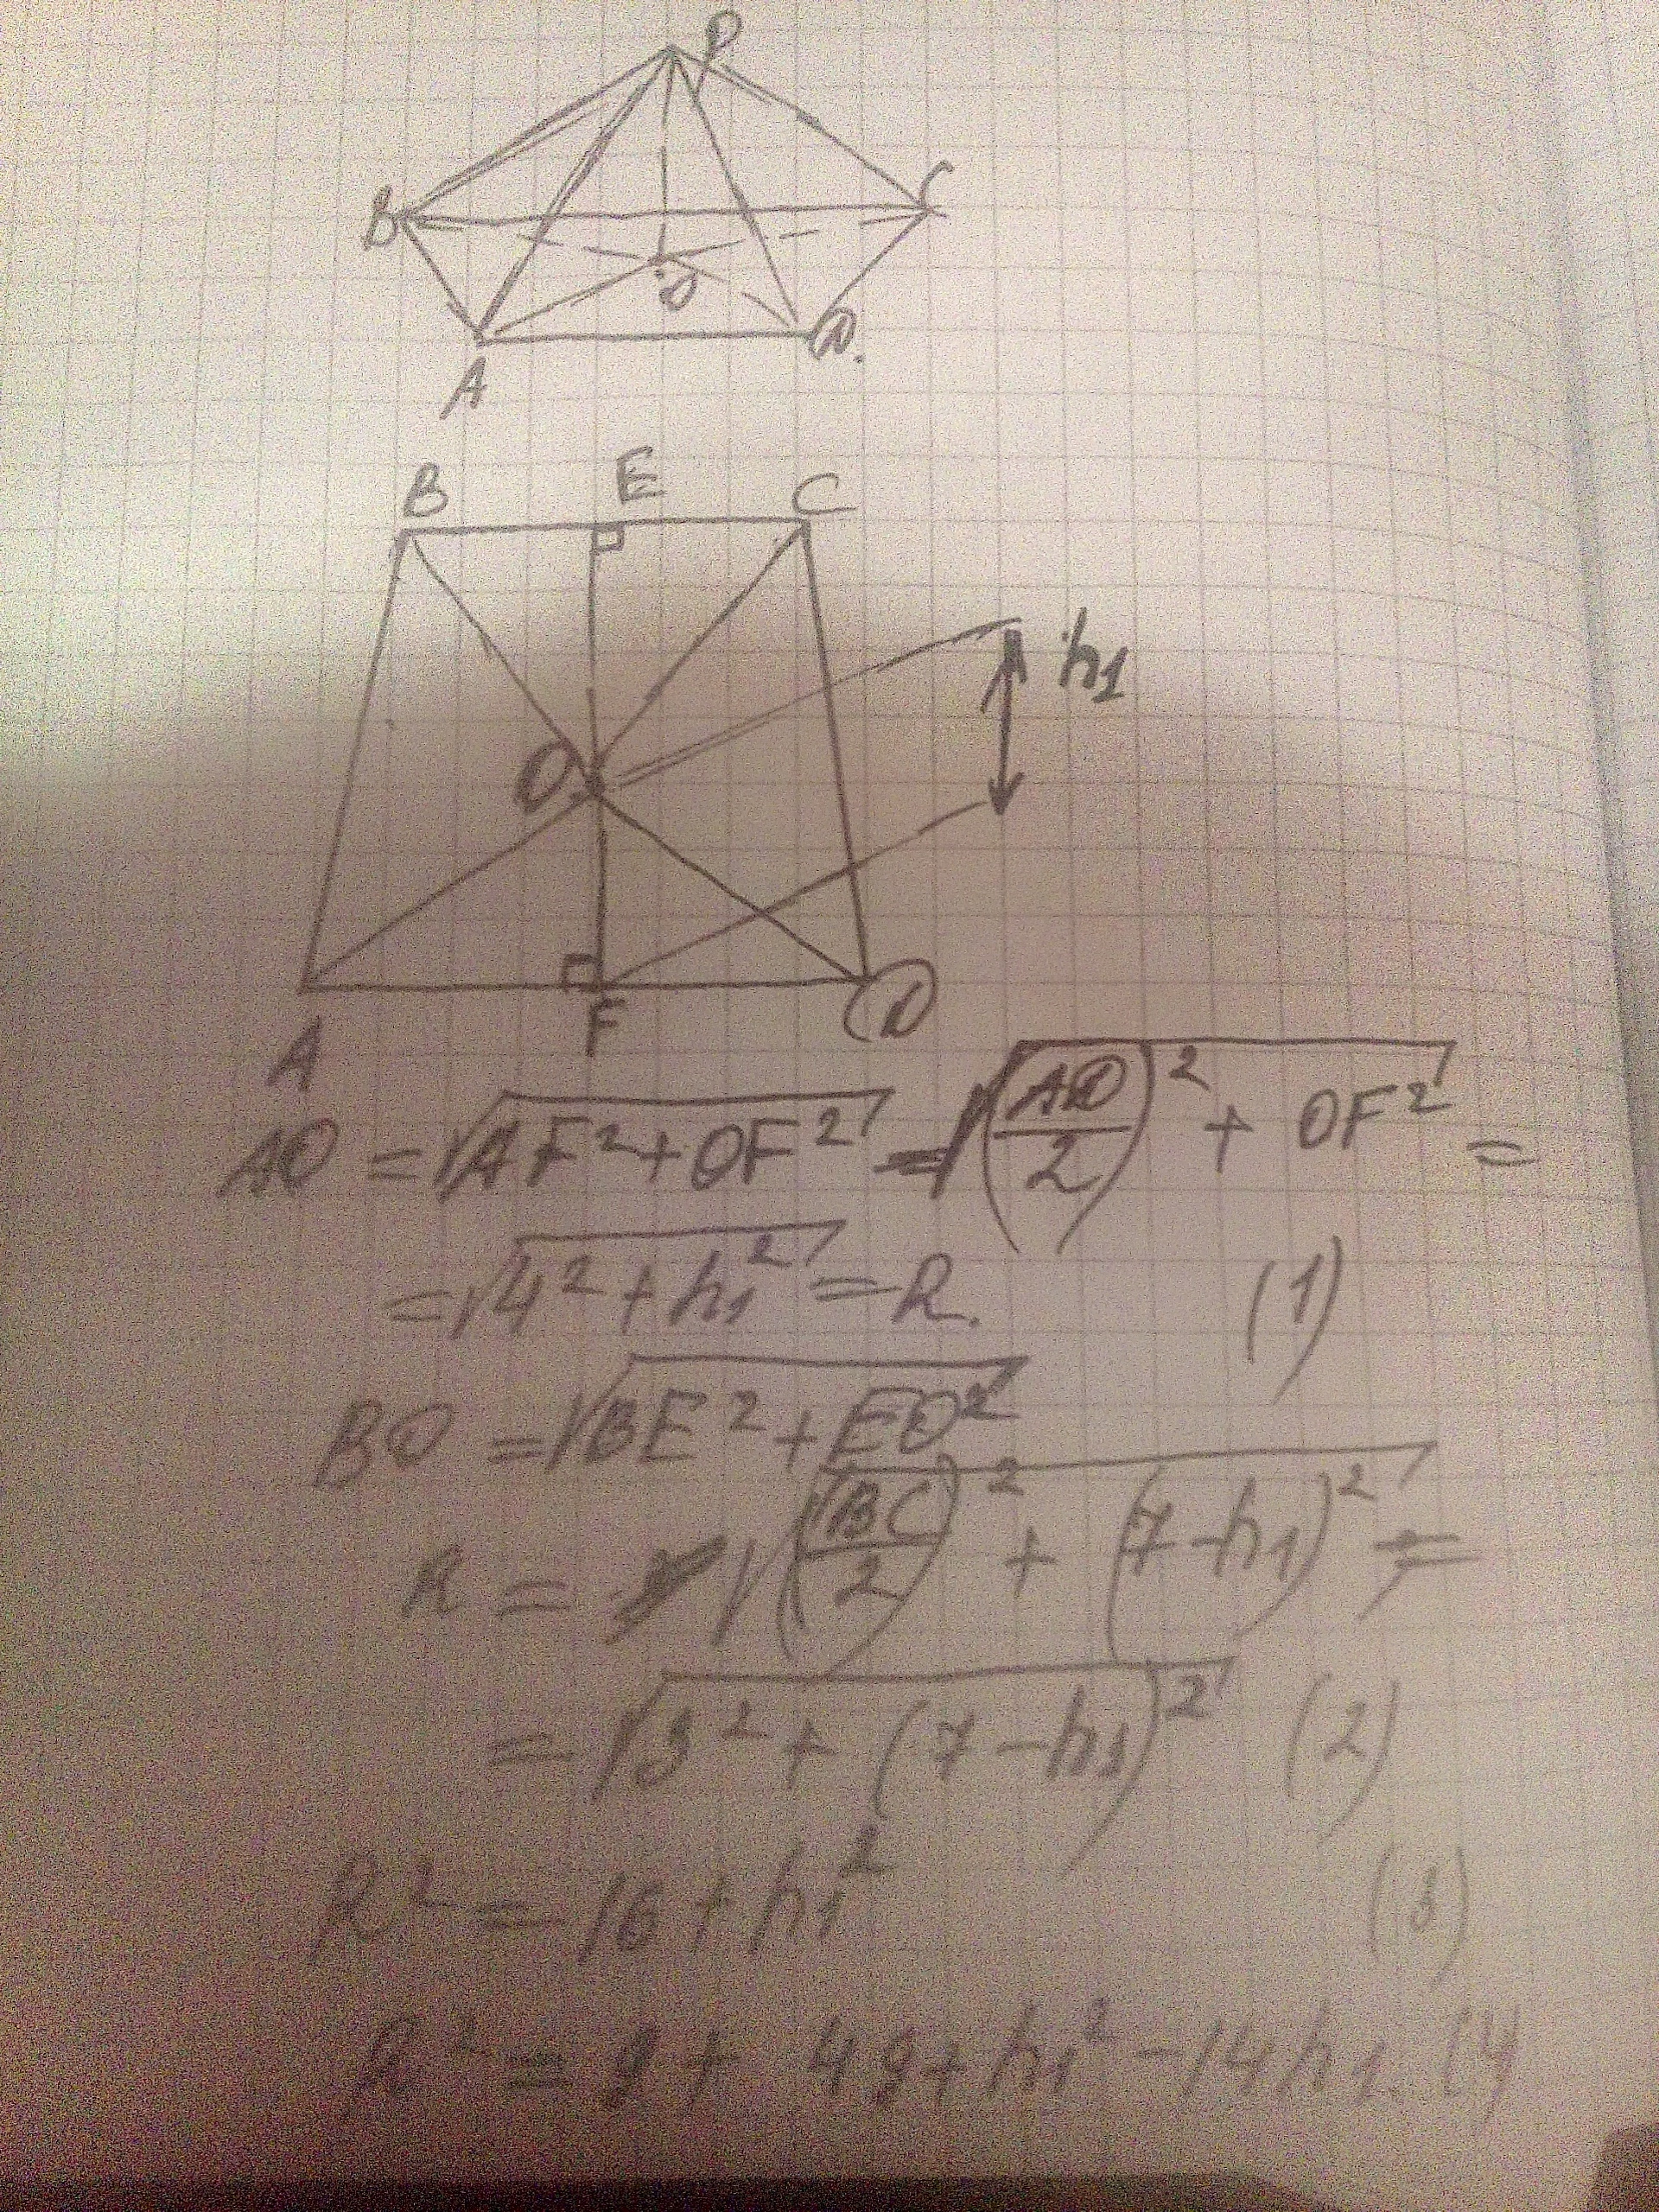 P
B
C
O
A
D
B E C
h1
O
F
A
D
AO = √AF²+OF² = √(AD/2)² + OF² =
= √4² + h1² = R. (1)
BO = √BE² + EO²
R = √(BC/2)² + (7-h1)² =
= √3² + (7-h1)² (2)
R² = 16 + h1² (3)
R² = 9 + 49 + h1² - 14h1. (4